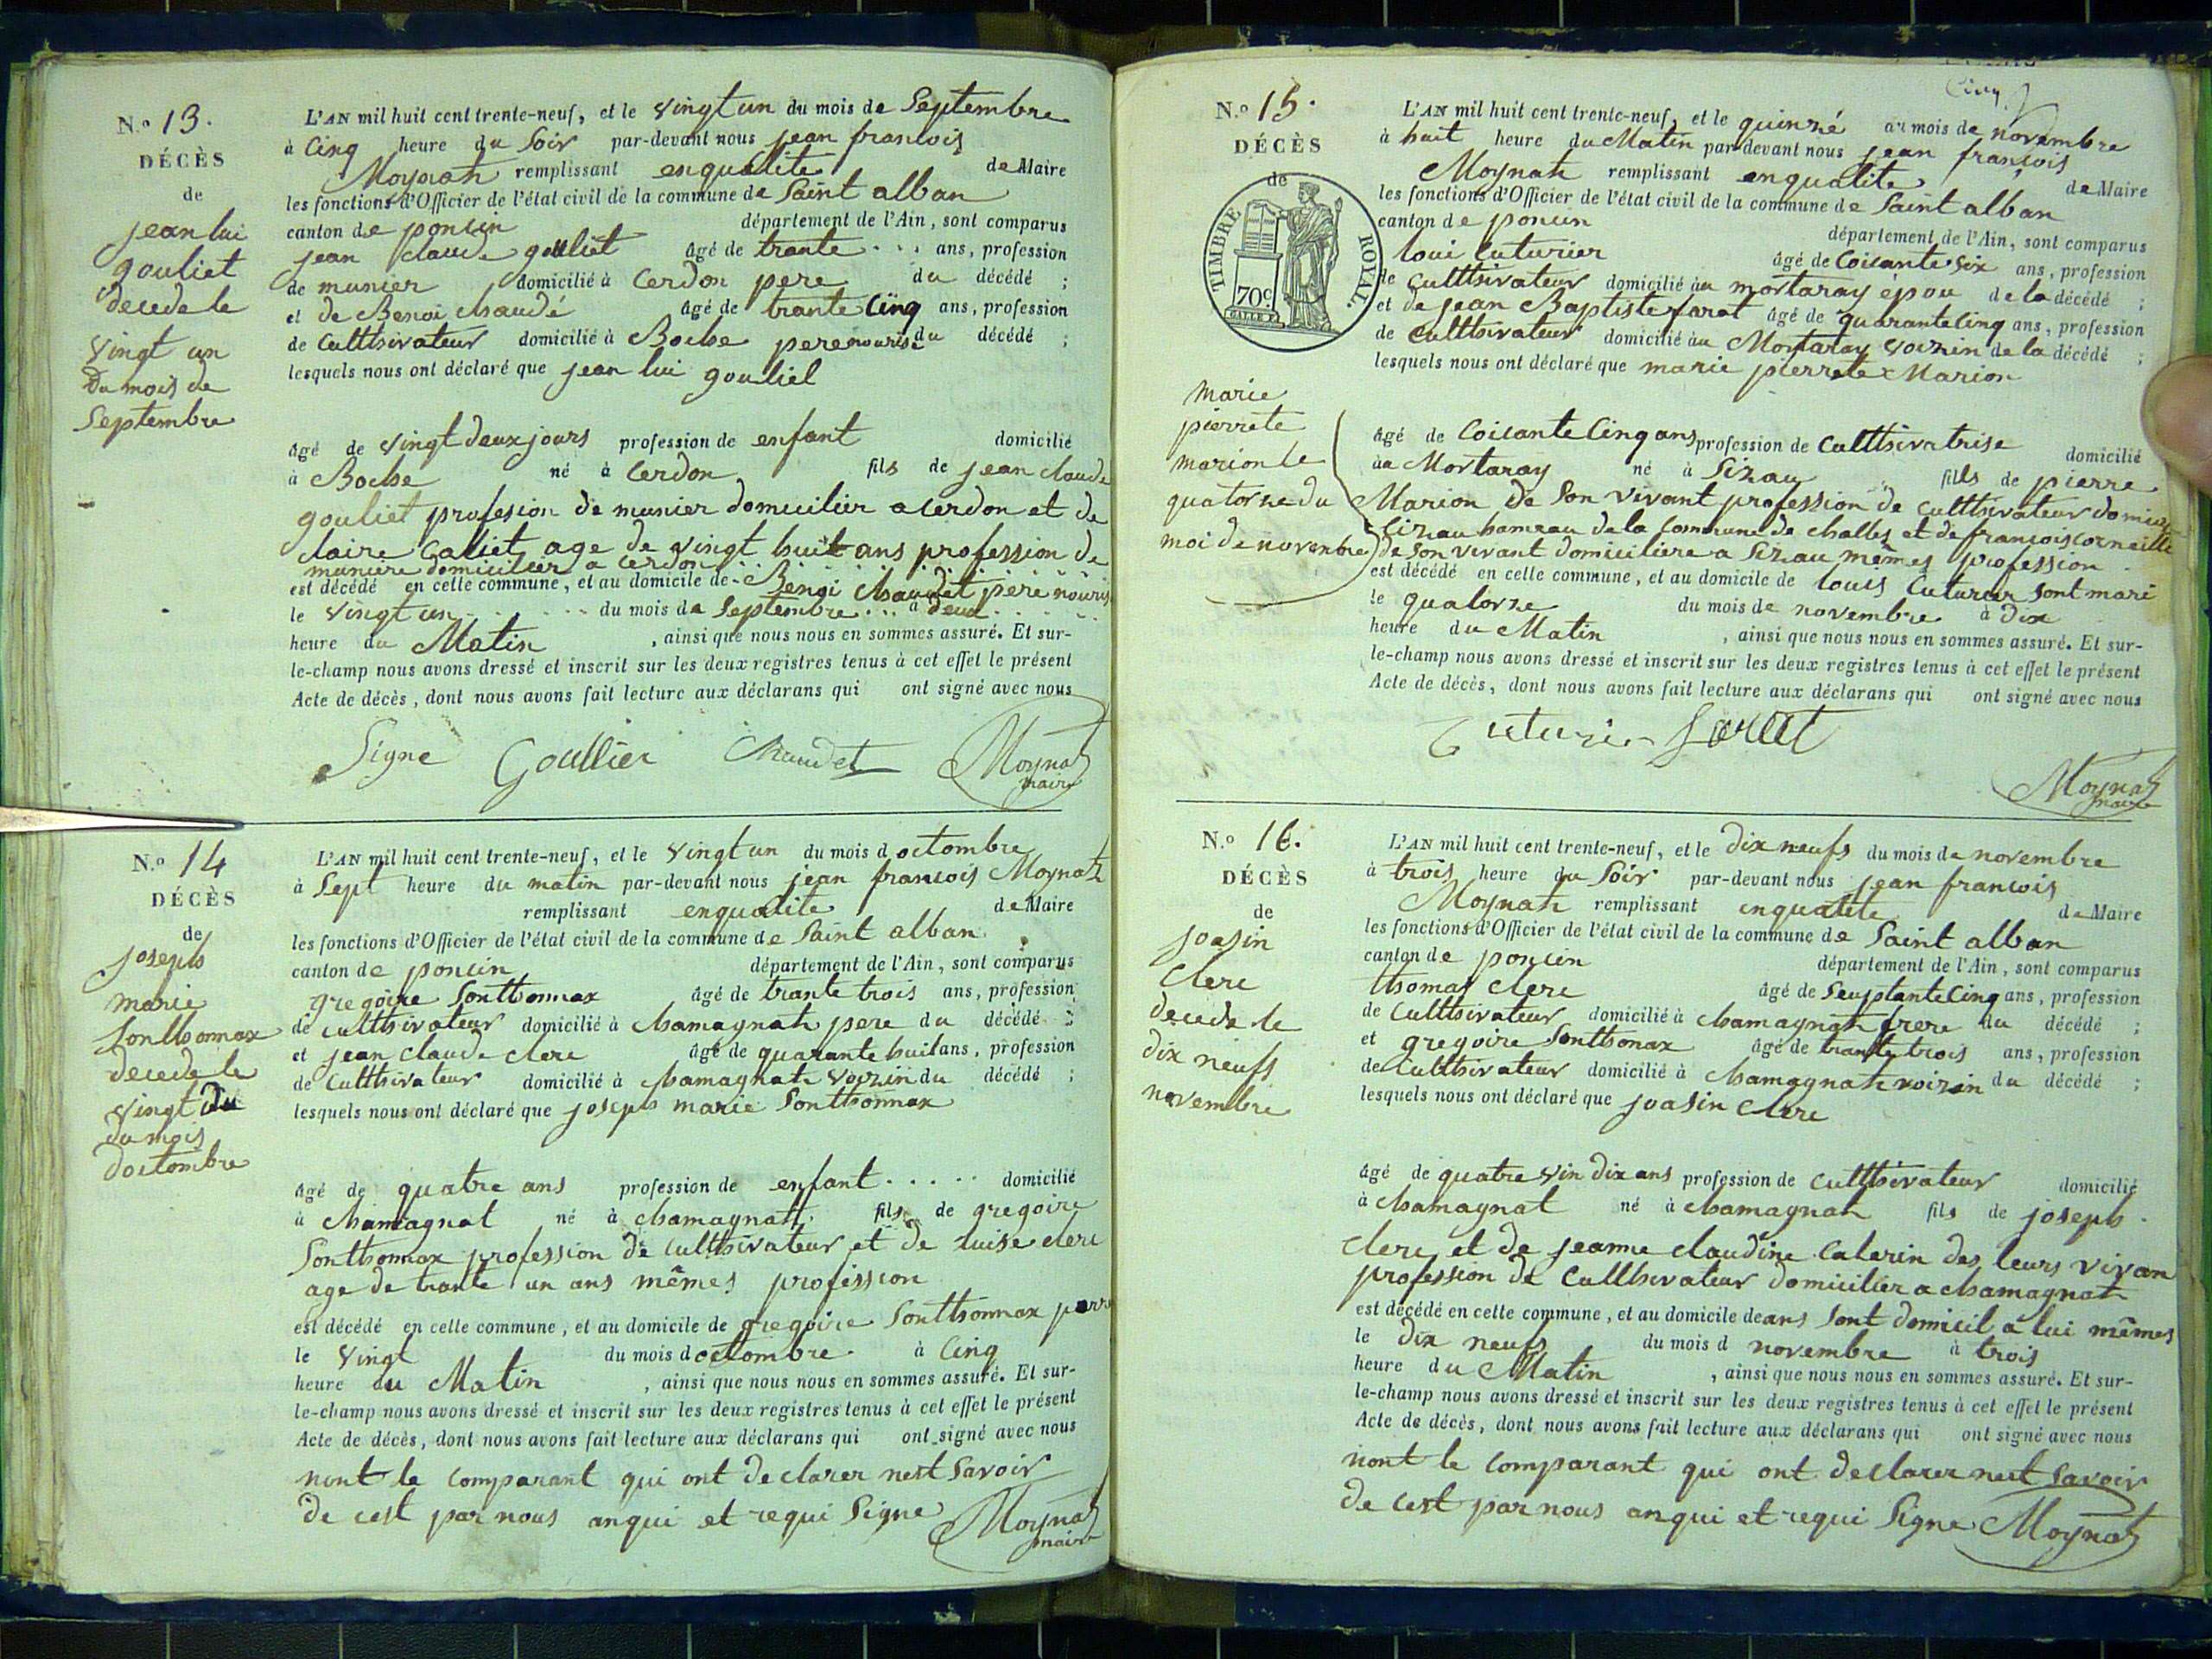 N.° 13.
DÉCÈS
de
jean lui
gouliet
decede le
vingt un
Du mois de
Septembre
L'AN mil huit cent trente-neuf, et le vingt un du mois de Septembre
à Cinq heure du Soir par-devant nous jean francois
Moynat remplissant enqualite de Maire
les fonctions d'Officier de l'état civil de la commune de Saint alban
canton de poncin département de l'Ain, sont comparus
jean Claude gouliet âgé de trante . . . ans, profession
de munier domicilié à Cerdon pere du décédé ;
et de Benoi chaudé âgé de trante Cinq ans, profession
de Culttivateur domicilié à Boche pere nourisé du décédé ;
lesquels nous ont déclaré que jean lui gouliel
âgé de vingt deux jours profession de enfant domicilié
à Boche né à Cerdon fils de jean Claude
gouliet profesion de munier domicilier a Cerdon et de
claire Galliet age de vingt huit ans profession de
muniere domicilier a Cerdon
est décédé en celle commune, et au domicile de Benoi chaudet pere nouris
le vingt un du mois de Septembre . . . à deux
heure du Matin , ainsi que nous nous en sommes assuré. Et sur-
le-champ nous avons dressé et inscrit sur les deux registres tenus à cet effet le présent
Acte de décès, dont nous avons fait lecture aux déclarans qui ont signé avec nous
Signe Goullier Chaudet Moynat
maire
N.° 14
DÉCÈS
de
joseph
marie
Sonthonnax
decede le
vingt du
du mois
doctombre
L'AN mil huit cent trente-neuf, et le vingt un du mois d octombre
à Sept heure du matin par-devant nous jean francois Moynat
remplissant enqualite de Maire
les fonctions d'Officier de l'état civil de la commune de Saint alban
canton de poncin département de l'Ain, sont comparus
gregoire Sonthonnax âgé de trante trois ans, profession
de culttivateur domicilié à chamagnat pere du décédé ;
et jean Claude clerc âgé de quarante huit ans, profession
de Culttivateur domicilié à chamagnat voizin du décédé ;
lesquels nous ont déclaré que joseph marie Sonthonnax
âgé de quatre ans profession de enfant . . . . . domicilié
à chamagnat né à chamagnat fils de gregoire
Sonthonnax profession de Culttivateur et de luise clerc
age de trante un ans mêmes profession
est décédé en celle commune, et au domicile de gregoire Sonthonnax pere
le vingt du mois doctombre à Cinq
heure du Matin , ainsi que nous nous en sommes assuré. Et sur-
le-champ nous avons dressé et inscrit sur les deux registres tenus à cet effet le présent
Acte de décès, dont nous avons fait lecture aux déclarans qui ont signé avec nous
nont le Comparant qui ont declarer nest Savoir
de cest par nous anqui et requi Signe Moynat
maire
N.° 15.
DÉCÈS
de
TIMBRE ROYAL
70c.
marie
pierrete
marion le
quatorze du
moi de novenbre
L'AN mil huit cent trente-neuf, et le quinzé du mois de novembre
à huit heure du Matin par-devant nous jean françois
Moynat remplissant enqualite de Maire
les fonctions d'Officier de l'état civil de la commune de Saint alban
canton de poncin département de l'Ain, sont comparus
loui Cuturier âgé de Coisante six ans, profession
de Culttivateur domicilié au mortaray epou de la décédé ;
et de jean Baptiste farat âgé de quarante Cinq ans, profession
de Culttivateur domicilié au Mortaray voizin de la décédé ;
lesquels nous ont déclaré que marie pierrete Marion
âgé de Coisante Cinq ans profession de Culttivatrise domicilié
au Mortaray né à Sizau fills de pierre
Marion de Son vivant profession de Culttivateur domici
Cizau hameau de la Commune de challes et de francois corneille
de Son vivant domiciliere a Sizau mêmes profession
est décédé en celle commune, et au domicile de louis Cuturier sont mari
le quatorze du mois de novembre à dix
heure du Matin , ainsi que nous nous en sommes assuré. Et sur-
le-champ nous avons dressé et inscrit sur les deux registres tenus à cet effet le présent
Acte de décès, dont nous avons fait lecture aux déclarans qui ont signé avec nous
Cuturier
Moynat
maire
N.° 16.
DÉCÈS
de
joasin
Clerc
decede le
dix neufs
novembre
L'AN mil huit cent trente-neuf, et le dix neufs du mois de novembre
à trois heure du Soir par-devant nous jean francois
Moynat remplissant enqualite de Maire
les fonctions d'Officier de l'état civil de la commune de Saint alban
canton de poncin département de l'Ain, sont comparus
thomas clerc âgé de Seuptante Cinq ans, profession
de Culttivateur domicilié à chamagnat frere du décédé ;
et gregoire Sonthonax âgé de trante trois ans, profession
de Culttivateur domicilié à chamagnat voizin du décédé ;
lesquels nous ont déclaré que joasin Clerc
âgé de quatre vin dix ans profession de Culttivateur domicilié
à chamagnat né à chamagnat fils de joseph
Clerc et de jeanne claudine Calerin des leurs vivan
profession de Culttivateur domicilier a chamagnat
est décédé en celle commune, et au domicile de ans sont domicil a lui mêmes
le dix neufs du mois d novembre à trois
heure du Matin , ainsi que nous nous en sommes assuré. Et sur-
le-champ nous avons dressé et inscrit sur les deux registres tenus à cet effet le présent
Acte de décès, dont nous avons fait lecture aux déclarans qui ont signé avec nous
nont le Comparant qui ont declarer nest Savoir
de cest par nous anqui et requi Signe Moynat